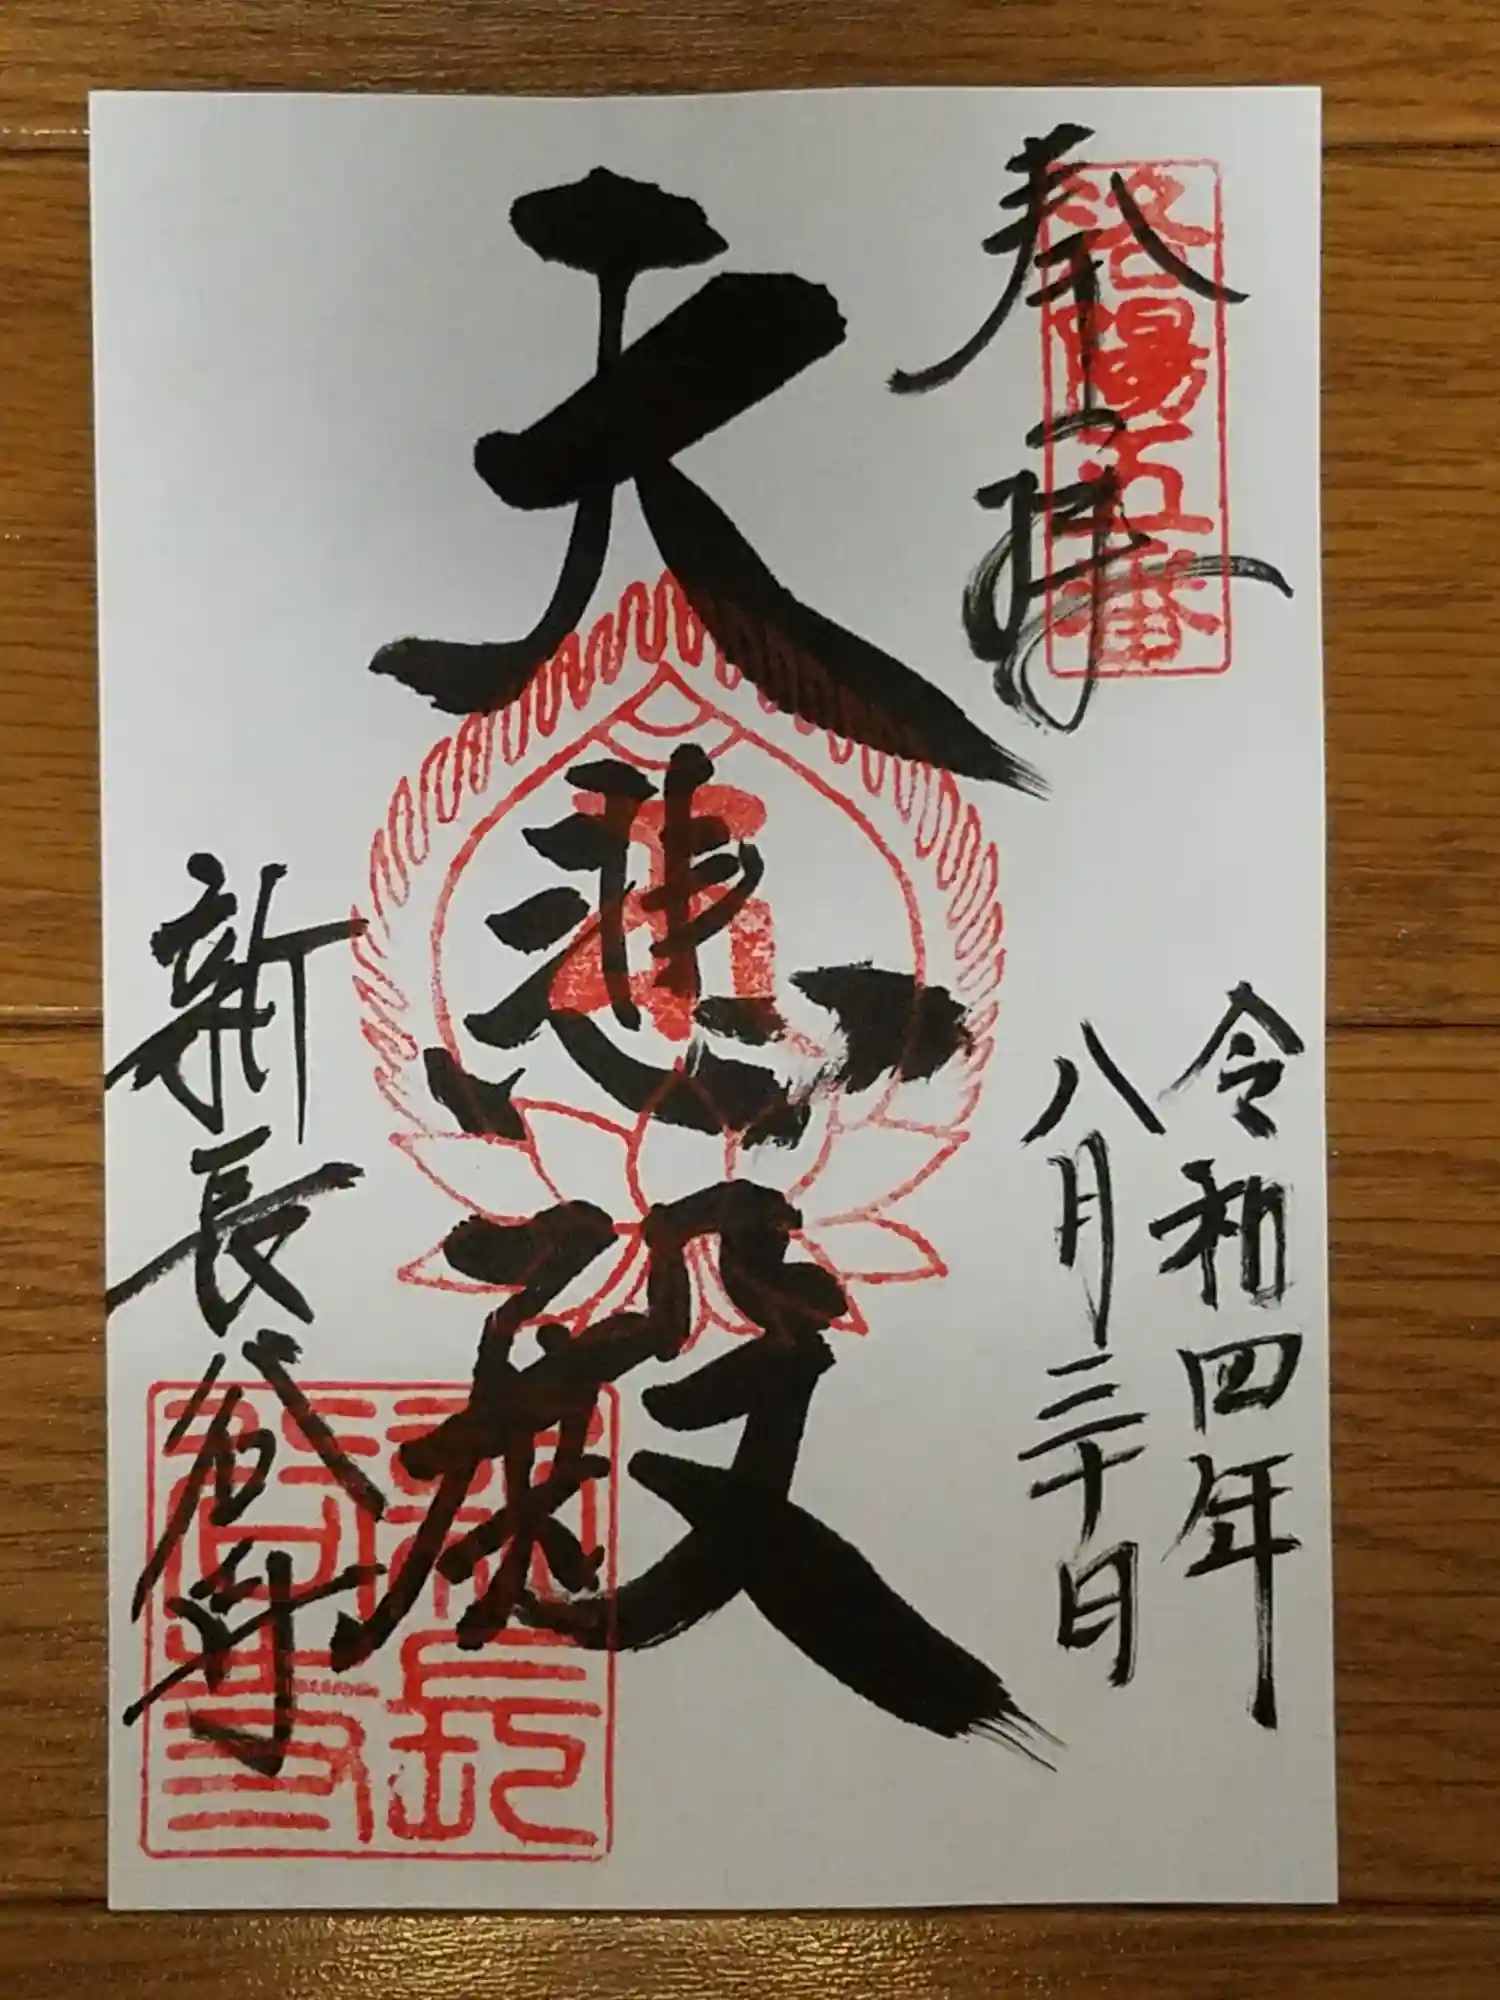 奉拝
洛陽五番
令和四年
八月三十日
大悲殿
新長谷寺
新長谷寺